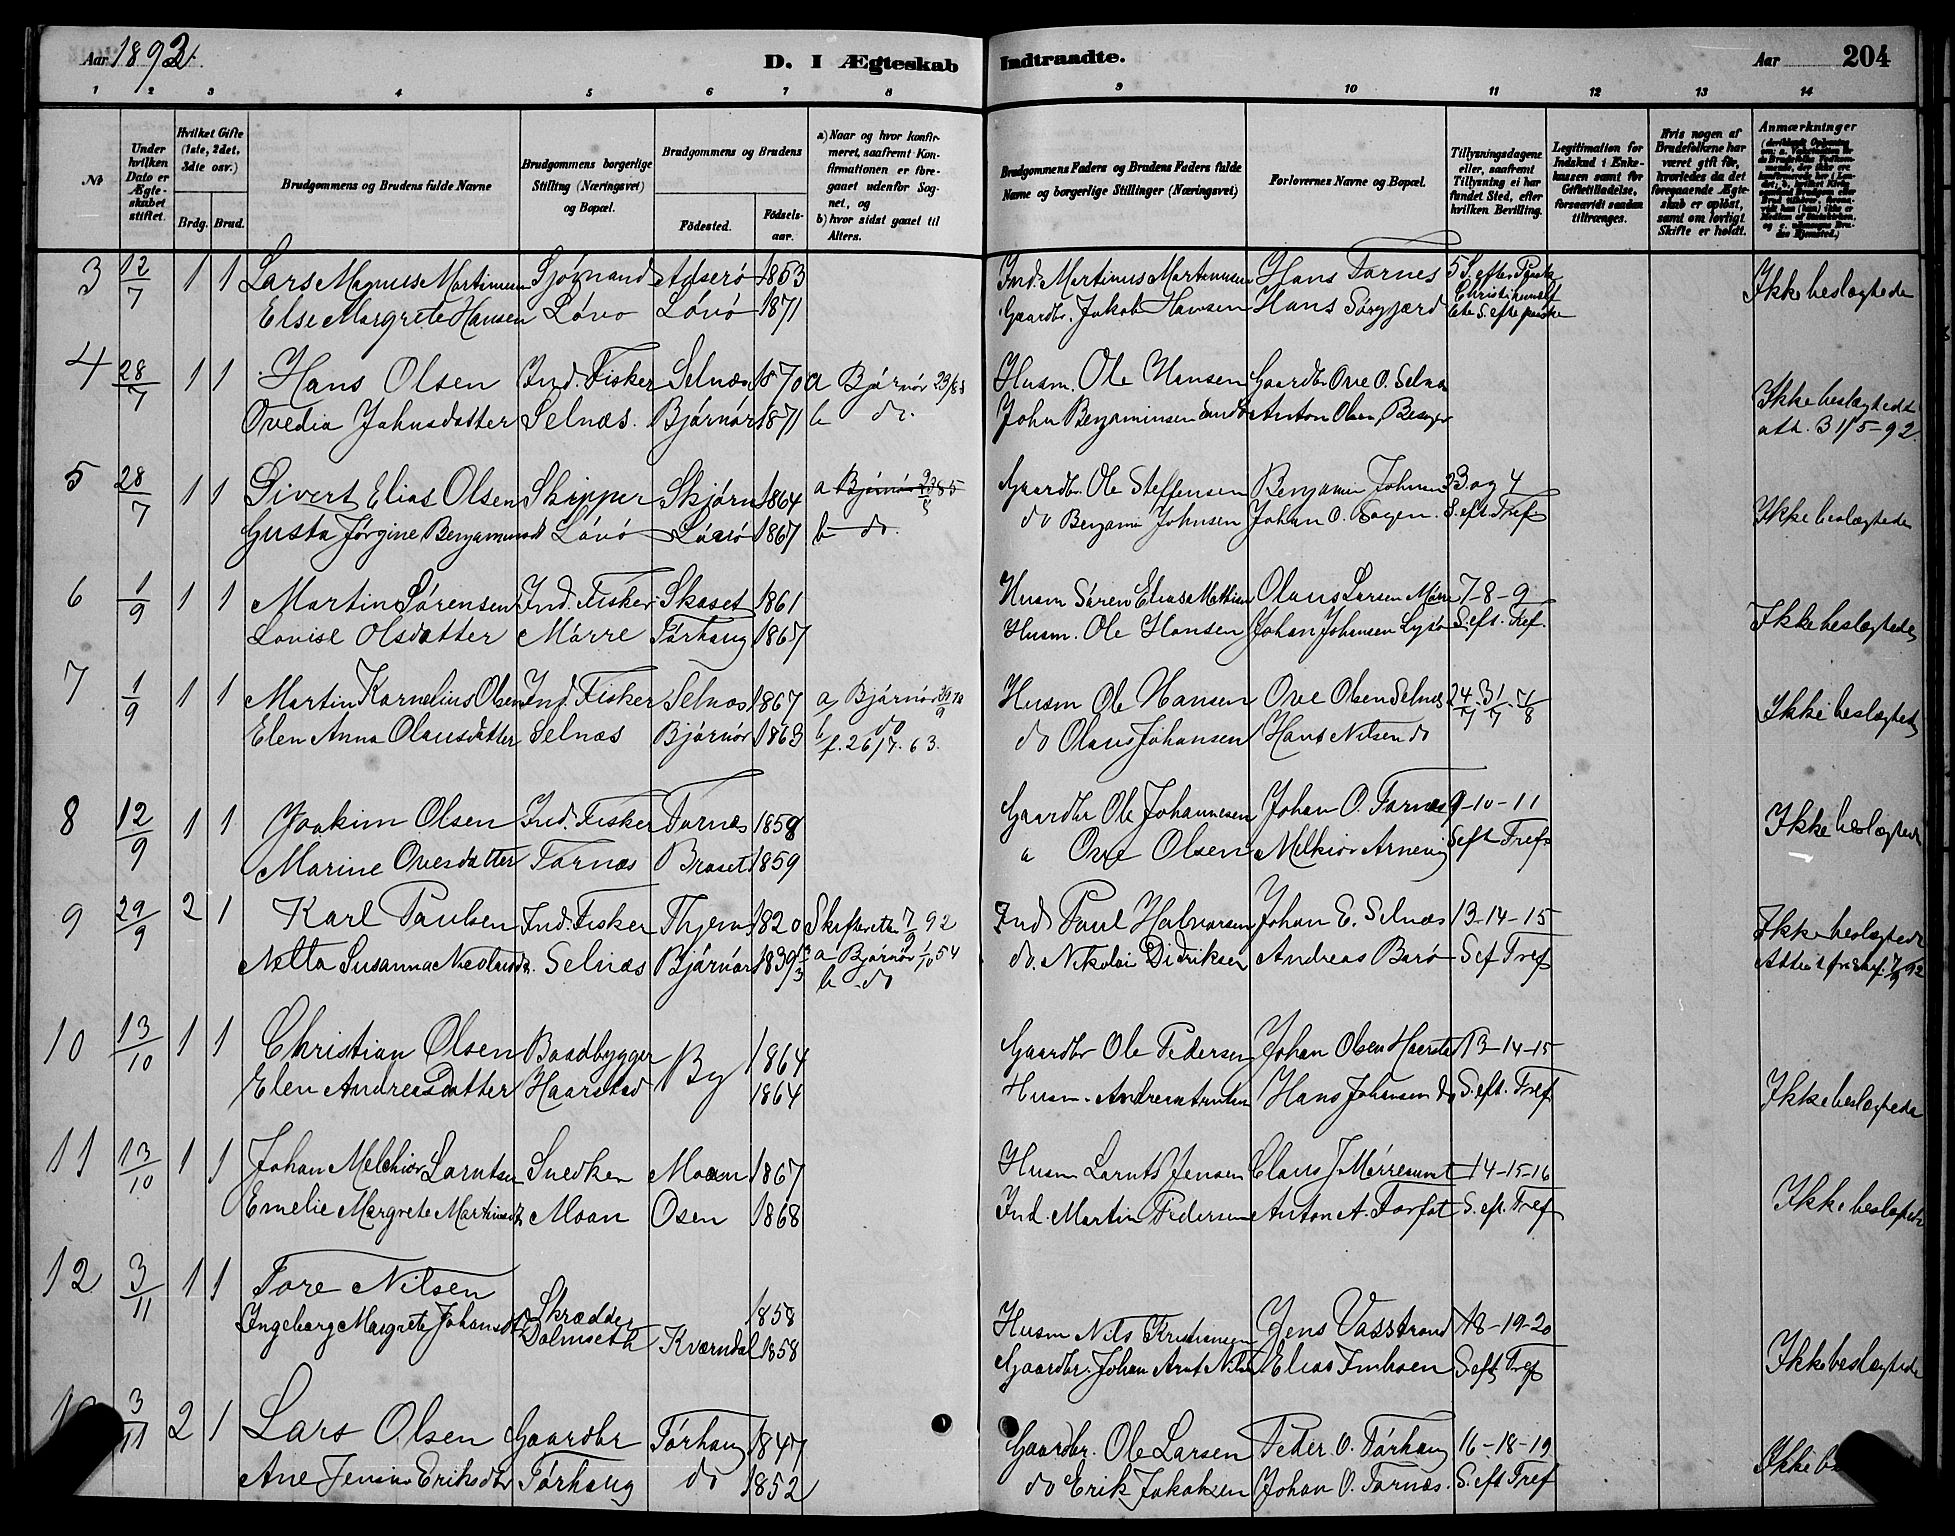 Aar 1892. D. I Ægteskab Indtraadte. Aar 204
1 2 3 4 5 6 7 8 9 10 11 12 13 14
No
Under hvilken Dato er Ægteskabet stiftet.
Hvilket Gifte (1ste, 2det, 3dte osv.)
Brdg. Brud.
Brudgommens og Brudens fulde Navne
Brudgommens borgerlige Stilling (Næringsvei) og Bopæl.
Brudgommens og Brudens
Fødested. Fødselsaar.
a) Naar og hvor konfirmeret, saafremt Konfirmationen er foregaaet udenfor Sognet, og
b) hvor sidst gaaet til Alters.
Brudgommens Faders og Brudens Faders fulde Navne og borgerlige Stillinger (Næringsvei)
Forlovernes Navne og Bopæl.
Tillysningsdagene eller, saafremt Tillysning ei har fundet Sted, efter hvilken Bevilling.
Legitimation for Indskud i Enkekassen samt for Giftetilladelse, forsaavidt saadan tiltrænges.
Hvis nogen af Brudefolkene har været gift før, hvorledes da det foregaaende Ægteskab er opløst, samt om lovligt Skifte er holdt.
Anmærkninger
3 12/7 1 1 Lars Magnus Martinusen Sjømand 1853 Ind. Martinus Martinusen Hans Tarnes 5 S. efter Paaske Ikke beslægtede
Else Margrete Hansen Løvø Løvø 1871 Gaardbr. Jakob Hansen Hans
4 28/7 1 1 Hans Olsen Ind. Fisker Selnæs 1870 a Bjørnør Husm. Ole Hansen Gaardbr Ove O. Selnæs Ikke beslægtede
Ovedia Johnsdatter Selnæs. Bjørnør 1871 b do. John Benjaminsen Anton Olsen att. 31/5-92
5 28/7 1 1 Sivert Elias Olsen Skipper Skjørn 1864 a Bjørnør Gaardbr. Ole Steffensen Benjamin Johnsen 3 og 4 Ikke beslægtede
Gusta Jørgine Løvø Løvø 1867 b do. do Benjamin Johnsen Johan O. S. eft. Tref
6 1/9 1 1 Martin Sørensen Ind. Fisker Skaset 1861 Husm Søren Elias Mathisen Olaus Larsen Mørre 7-8-9 Ikke beslægtede
Lovise Olsdatter Mørre Tørhaug 1867 Husm. Ole Hansen Johan Johansen Lysø S. eft. Tref.
7 1/9 1 1 Martin Kornelius Olsen Ind. Fisker Selnæs 1867 a Bjørnør Husm Ole Hansen Ove Olsen Selnæs 24/7 31/7 Ikke beslægtede
Elen Anna Olausdatter Selnæs Bjørnør 1863 b do f. 26/7. 63. do Olaus Johansen Hans Nilsen do
8 12/9 1 1 Joakim Olsen Ind. Fisker Tarnes 1858 Gaardbr Ole Johannesen Johan O. Tarnæs 9-10-11 Ikke beslægtede
Marine Ovesdatter Tarnæs Braset 1859 Ove Olsen Melkior Arnevig S eft Tref.
9 29/9 2 1 Karl Paulsen Ind. Fisker 1820 Skifteret 7/9 92 Ind Paul Halvorsen Johan E. Selnæs 13-14-15 Ikke beslægtede
Susanna Selnæs Bjørnør 1839 a Bjørnør 1/10 54 b do do. Nikolai Didriksen Andreas Barø S ef Tref
10 13/10 1 1 Christian Olsen Baadbygger By 1864 Gaardbr Ole Pedersen Johan Olsen 13-14-15 Ikke beslægtede
Elen Andreasdatter Haarstad 1864 Husm. Hans Johansen do S. eft. Tref
11 13/10 1 1 Johan Melchior Larntsen Snedker Moan 1867 Husm Larnts Jensen 14-15-16 Ikke beslægtede
Emelie Margrete Moan Osen 1868 Ind. Martin Pedersen Anton A. S. eft. Tref
12 3/11 1 1 Tore Nilsen Skrædder 1858 Husm Nils Kristiansen Jens Vasstrand 18-19-20
Ingeborg Margrete Johansdtr Dalmseth Kværndal 1858 Gaardbr. Johan Arnt Nilsen Elias S. eft. Tref Ikke beslægtede
3/11 2 1 Lars Olsen Gaardbr Tørhaug 1847 Gaardbr. Ole Larsen Peder. O. Tørhaug 16-18-19
Ane Jensine Eriksdtr Tørhaug do 1852 do Erik Jakobsen Johan O. Tarnæs. S. eft Tref